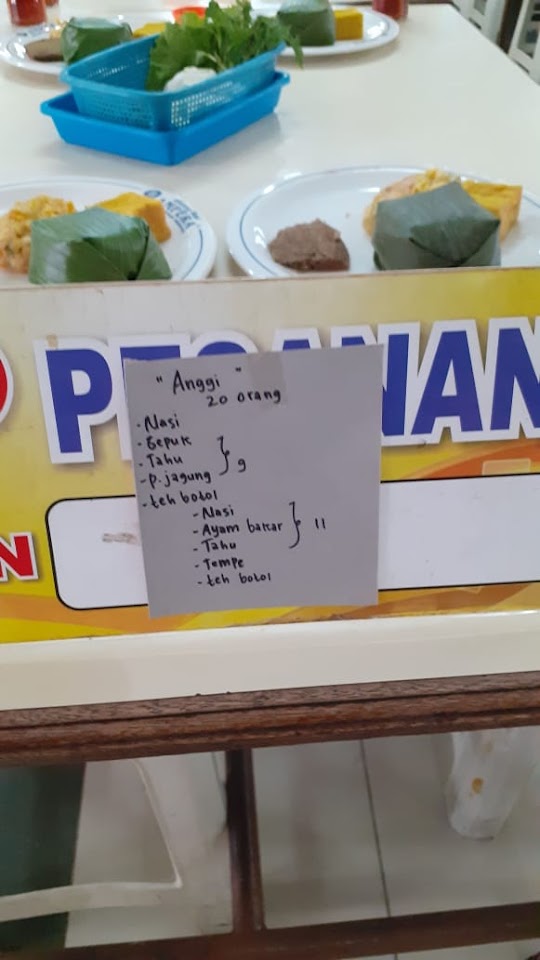 PESANAN
" Anggi "
20 orang
- Nasi
- Gepuk
- Tahu } 9
- P. jagung
- teh botol
- Nasi
- Ayam bakar } 11
- Tahu
- Tempe
- teh botol
N